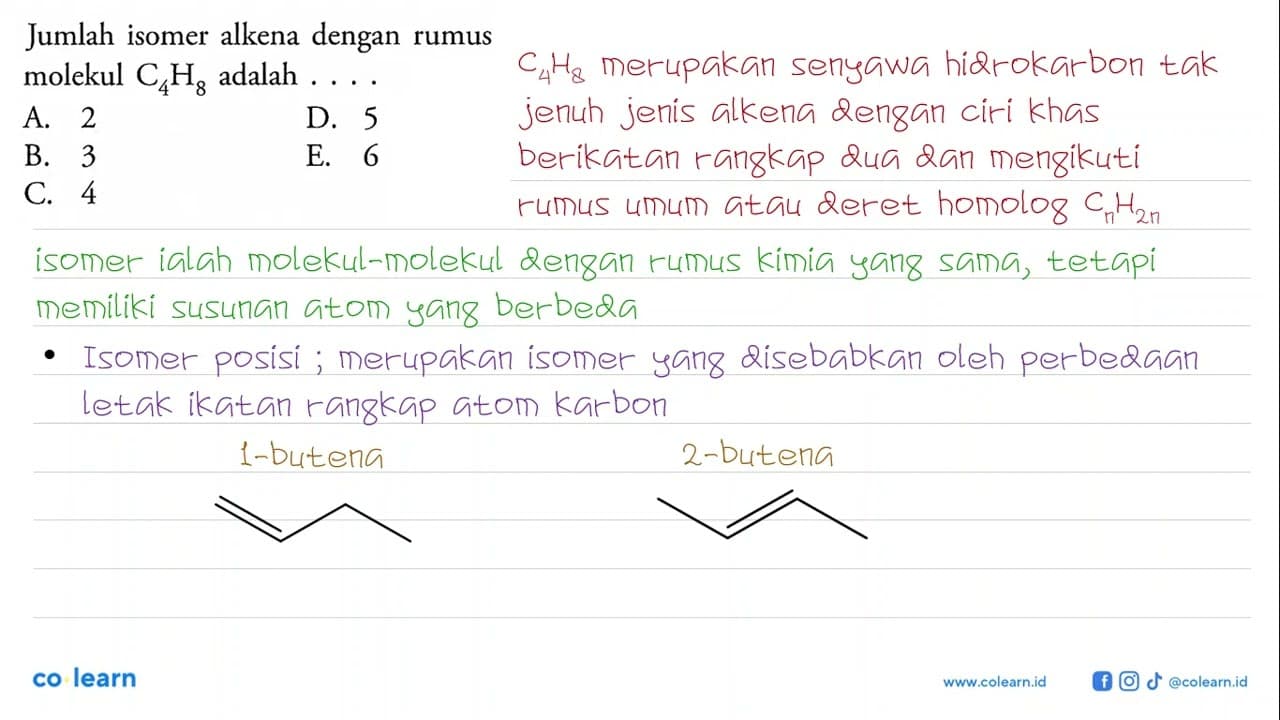 Jumlah isomer alkena dengan rumus
molekul C₄H₈ adalah . . . .
A. 2 D. 5
B. 3 E. 6
C. 4
C₄H₈ merupakan senyawa hidrokarbon tak
jenuh jenis alkena dengan ciri khas
berikatan rangkap dua dan mengikuti
rumus umum atau deret homolog CₙH₂ₙ
isomer ialah molekul-molekul dengan rumus kimia yang sama, tetapi
memiliki susunan atom yang berbeda
• Isomer posisi ; merupakan isomer yang disebabkan oleh perbedaan
letak ikatan rangkap atom karbon
1-butena 2-butena
co learn
www.colearn.id @colearn.id